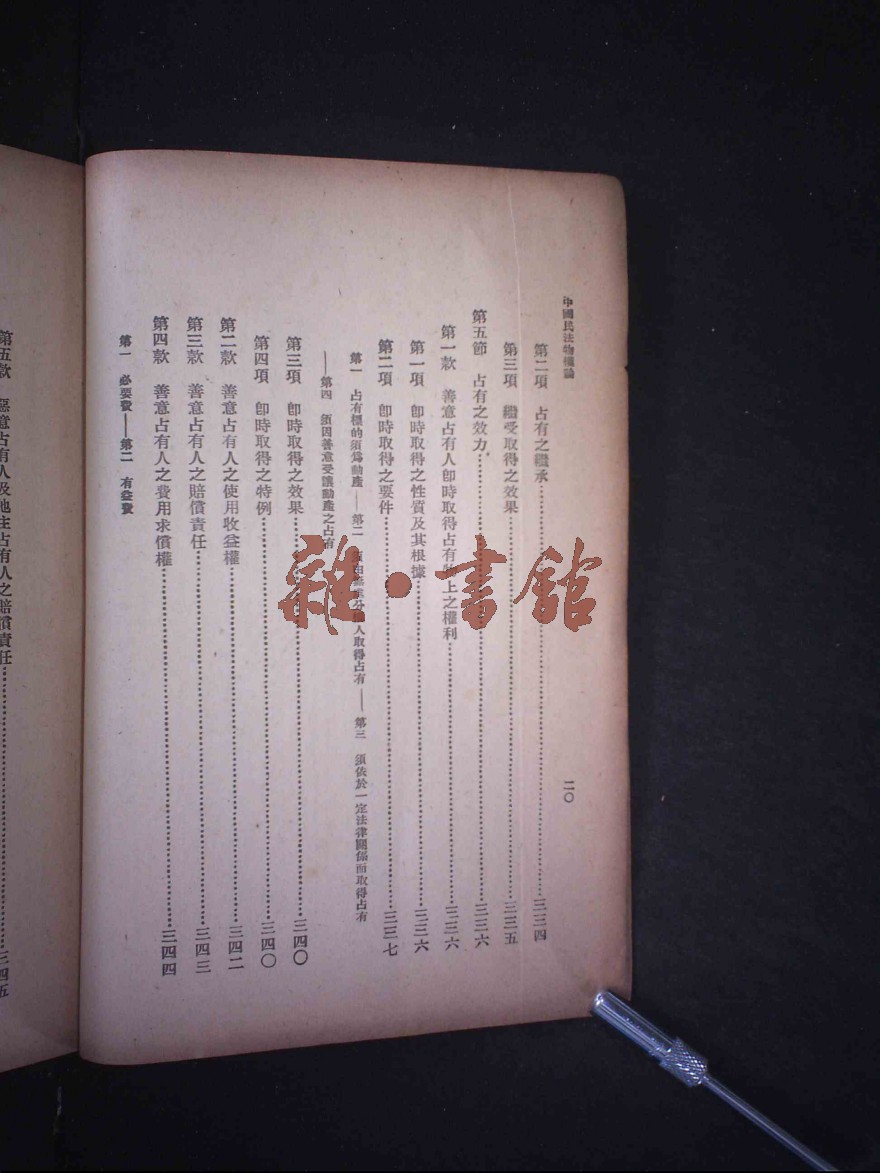 中國民法物權論
二〇
第二項 占有之繼承……三三四
第三項 繼受取得之效果……三三五
第五節 占有之效力……三三六
第一款 善意占有人卽時取得占有物上之權利……三三六
第一項 卽時取得之性質及其根據……三三六
第二項 卽時取得之要件……三三七
第一 占有標的須爲動產——第二 人取得占有——第三 須依於一定法律關係而取得占有
——第四 須因善意受讓動產之占有
第三項 卽時取得之效果……三四〇
第四項 卽時取得之特例……三四〇
第二款 善意占有人之使用收益權……三四二
第三款 善意占有人之賠償責任……三四三
第四款 善意占有人之費用求償權……三四四
第一 必要費——第二 有益費
第五款 惡意占有人及他主占有人之賠償責任……三四五
雜·書館